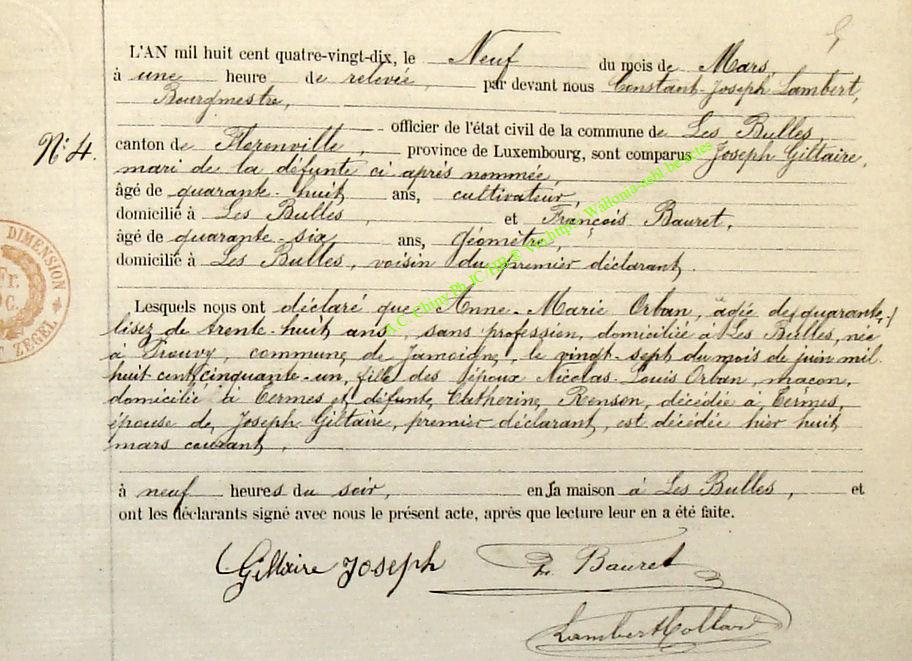 L'AN mil huit cent quatre-vingt-dix, le Neuf du mois de Mars
à une heure de relevée, par devant nous Constant-Joseph Lambert,
Bourgmestre,
officier de l'état civil de la commune de Les Bulles,
N° 4.
canton de Florenville, province de Luxembourg, sont comparus Joseph Giltaire,
mari de la défunte ci après nommée
âgé de quarante-huit ans, cultivateur,
domicilié à Les Bulles, et François Bauret,
âgé de quarante-six ans, géomètre,
domicilié à Les Bulles, voisin du premier déclarant.
Lesquels nous ont déclaré que Anne-Marie Orban, âgée de quarante
lisez de trente-huit ans, sans profession, domiciliée à Les Bulles, née
à Prouvy, commune de Jamoigne, le vingt-sept du mois de juin mil
huit cent cinquante-un, fille des époux Nicolas-Louis Orban, maçon,
domicilié à Termes et défunte Catherine Renson, décédée à Termes,
épouse de Joseph Giltaire, premier déclarant, est décédée hier huit
mars courant,
à neuf heures du soir, en sa maison à Les Bulles, et
ont les déclarants signé avec nous le présent acte, après que lecture leur en a été faite.
Giltaire Joseph Bauret
Lambert Collard
DIMENSION
Fr.
C.
ZEGEL